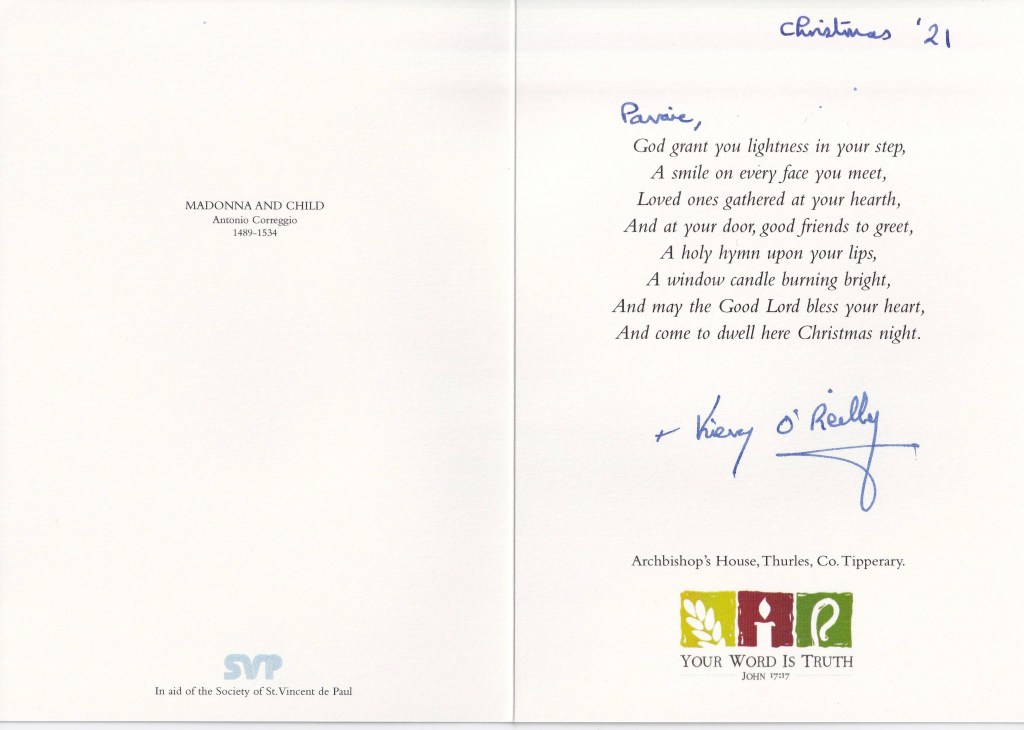 MADONNA AND CHILD
Antonio Correggio
1489-1534
SVP
In aid of the Society of St. Vincent de Paul
Christmas '21
God grant you lightness in your step,
A smile on every face you meet,
Loved ones gathered at your hearth,
And at your door, good friends to greet,
A holy hymn upon your lips,
A window candle burning bright,
And may the Good Lord bless your heart,
And come to dwell here Christmas night.
+ Kieran O'Reilly
Archbishop's House, Thurles, Co. Tipperary.
YOUR WORD IS TRUTH
JOHN 17:17